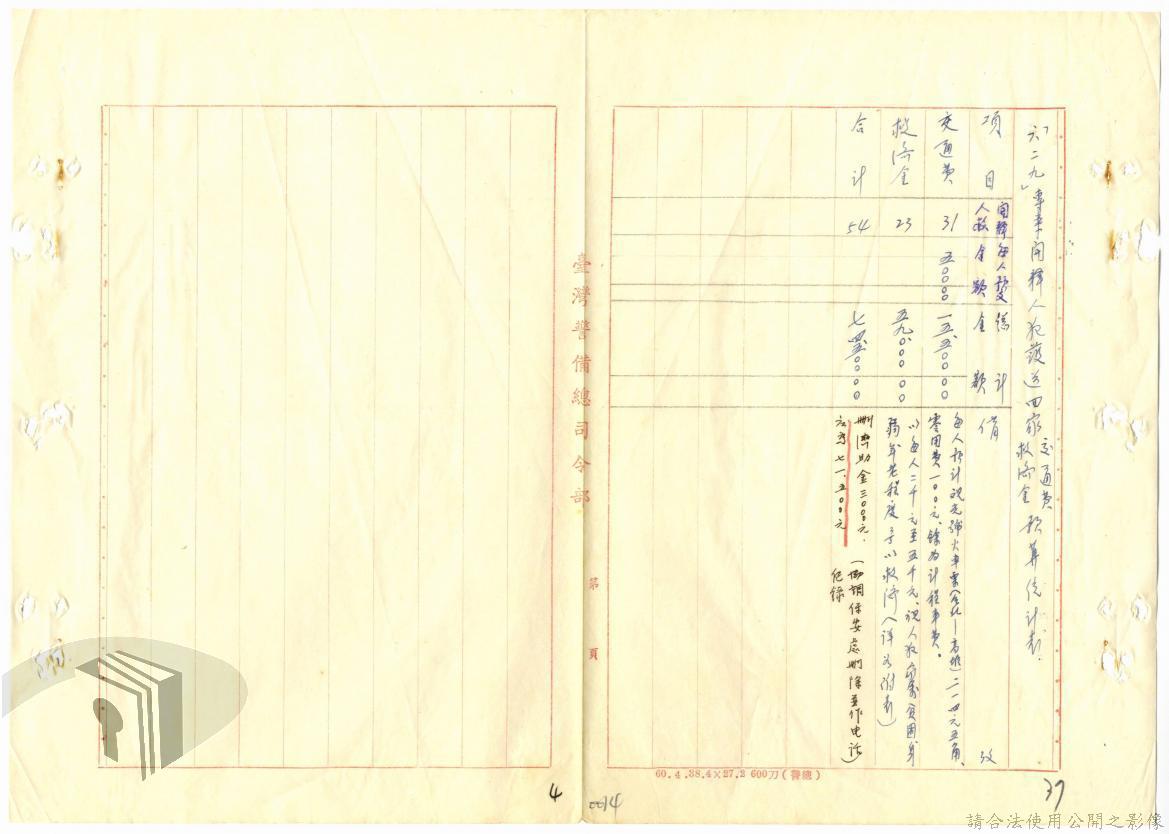 「六二九」專案開釋人犯護送回家交通費救濟金預算統計表.
項目
開釋人數
每人預支金額
總計金額
備攷
交通費
31
五〇〇 〇〇
一五、五〇〇 〇〇
每人預計視光號火車票(台北—高雄)二一四元五角、
零用費一〇〇元、餘為計程車費。
救濟金
23
五九、〇〇〇 〇〇
每人二千元至五千元、視人犯家屬貧困身
弱年老程度予以救濟(詳如附表)
合計
54
七四、五〇〇 〇〇
刪獎助金三〇〇〇元.
七一、五〇〇元
(協調保安處刪除並作電話
紀錄
臺灣警備總司令部
第 頁
60.4.38.4×27.2 600刀(警總)
4
0014
37
請合法使用公開之影像